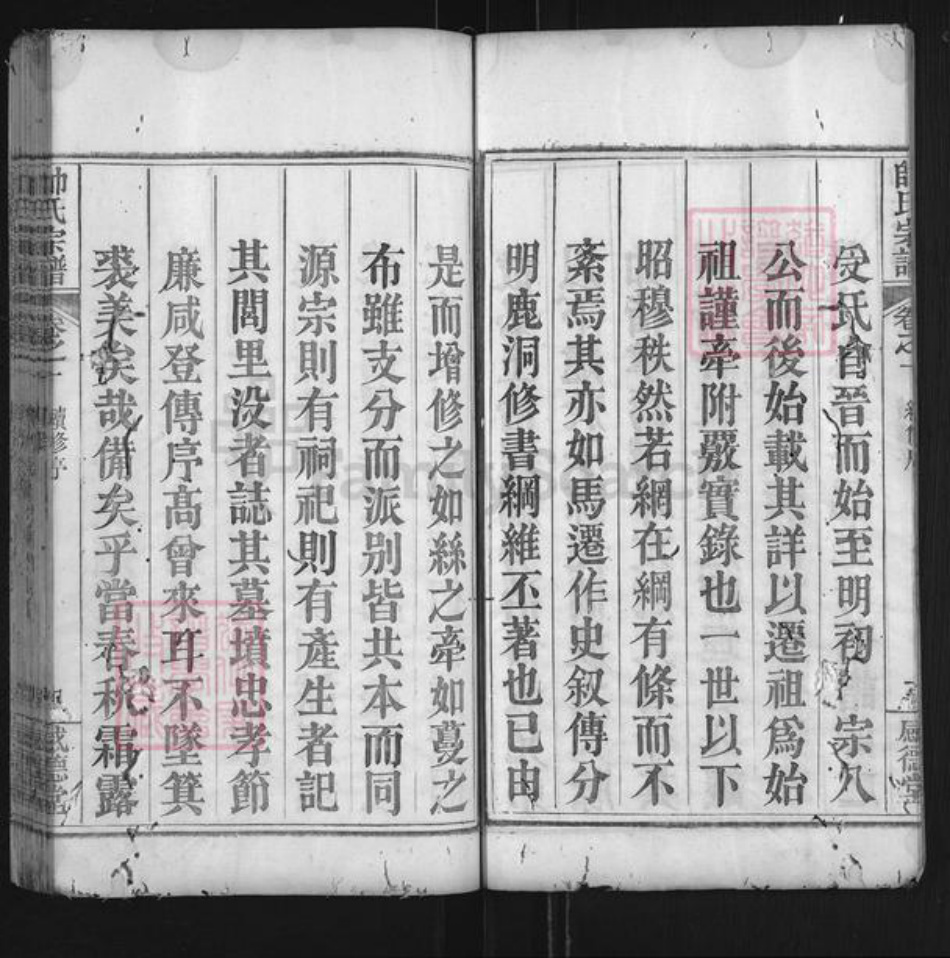 受氏自晉而始至明初 宗八
公而後始載其詳以遷祖爲始
祖謹牽附覈實錄也一世以下
昭穆秩然若網在綱有條而不
紊焉其亦如馬遷作史叙傳分
明鹿洞修書綱維丕著也已由
是而增修之如絲之牽如蔓之
布雖支分而派别皆共本而同
源宗則有祠祀則有產生者記
其閭里没者誌其墓墳忠孝節
廉咸登傳序髙曾來耳不墜箕
裘美矣哉備矣乎當春秋霜露
帥氏宗譜 卷之一 續修序 咸德堂